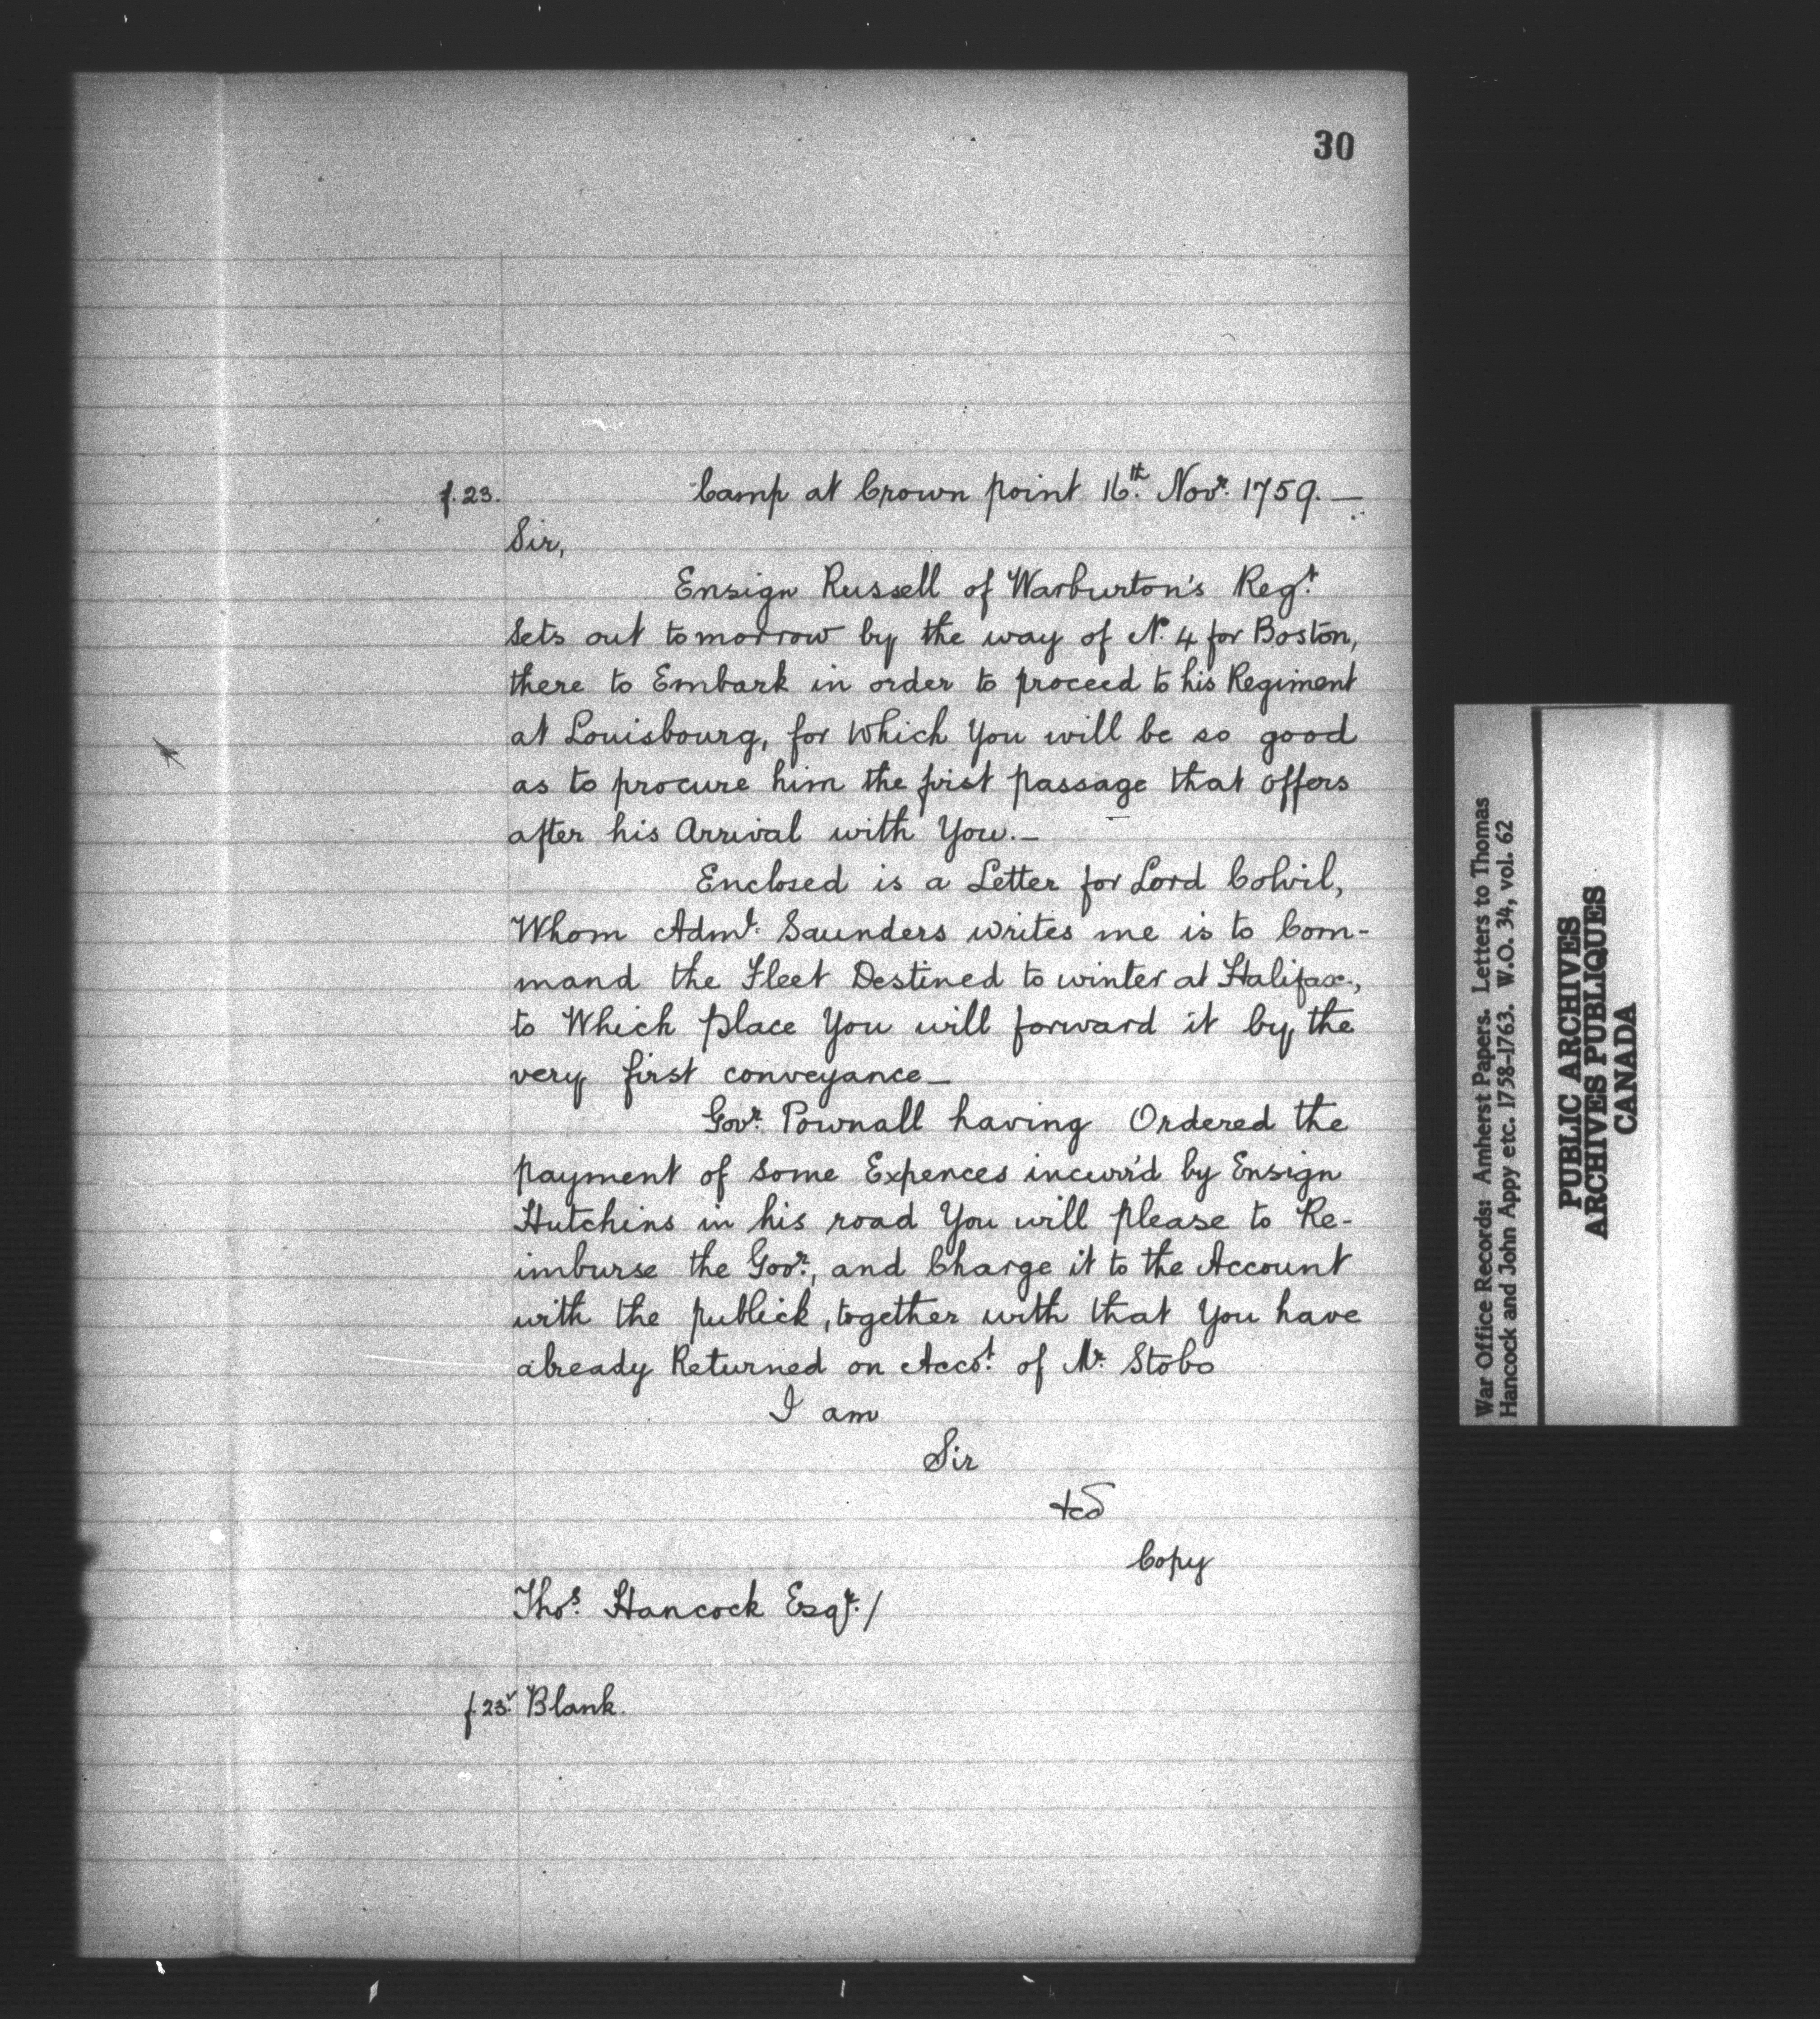 30
f.23. Camp at Crown point 16th. Novr. 1759. —
Sir,
Ensign Russell of Warburton's Regt.
Sets out tomorrow by the way of N. 4 for Boston,
there to Embark in order to proceed to his Regiment
at Louisbourg, for Which You will be so good
as to procure him the first passage that offers
after his Arrival with You. —
Enclosed is a Letter for Lord Colvil,
Whom Adml. Saunders writes me is to Com-
mand the Fleet Destined to winter at Halifax,
to Which place You will forward it by the
very first conveyance —
Govr. Pownall having Ordered the
payment of some Expences incurr'd by Ensign
Hutchins in his road You will please to Re-
imburse the Govr., and Charge it to the Account
with the publick, together with that You have
already Returned on Accot. of Mr. Stobo
I am
Sir
&ca
Copy
Thos. Hancock Esqr. /
f.23v. Blank.
War Office Records: Amherst Papers. Letters to Thomas
Hancock and John Appy etc. 1758-1763. W.O. 34, vol. 62
PUBLIC ARCHIVES
ARCHIVES PUBLIQUES
CANADA